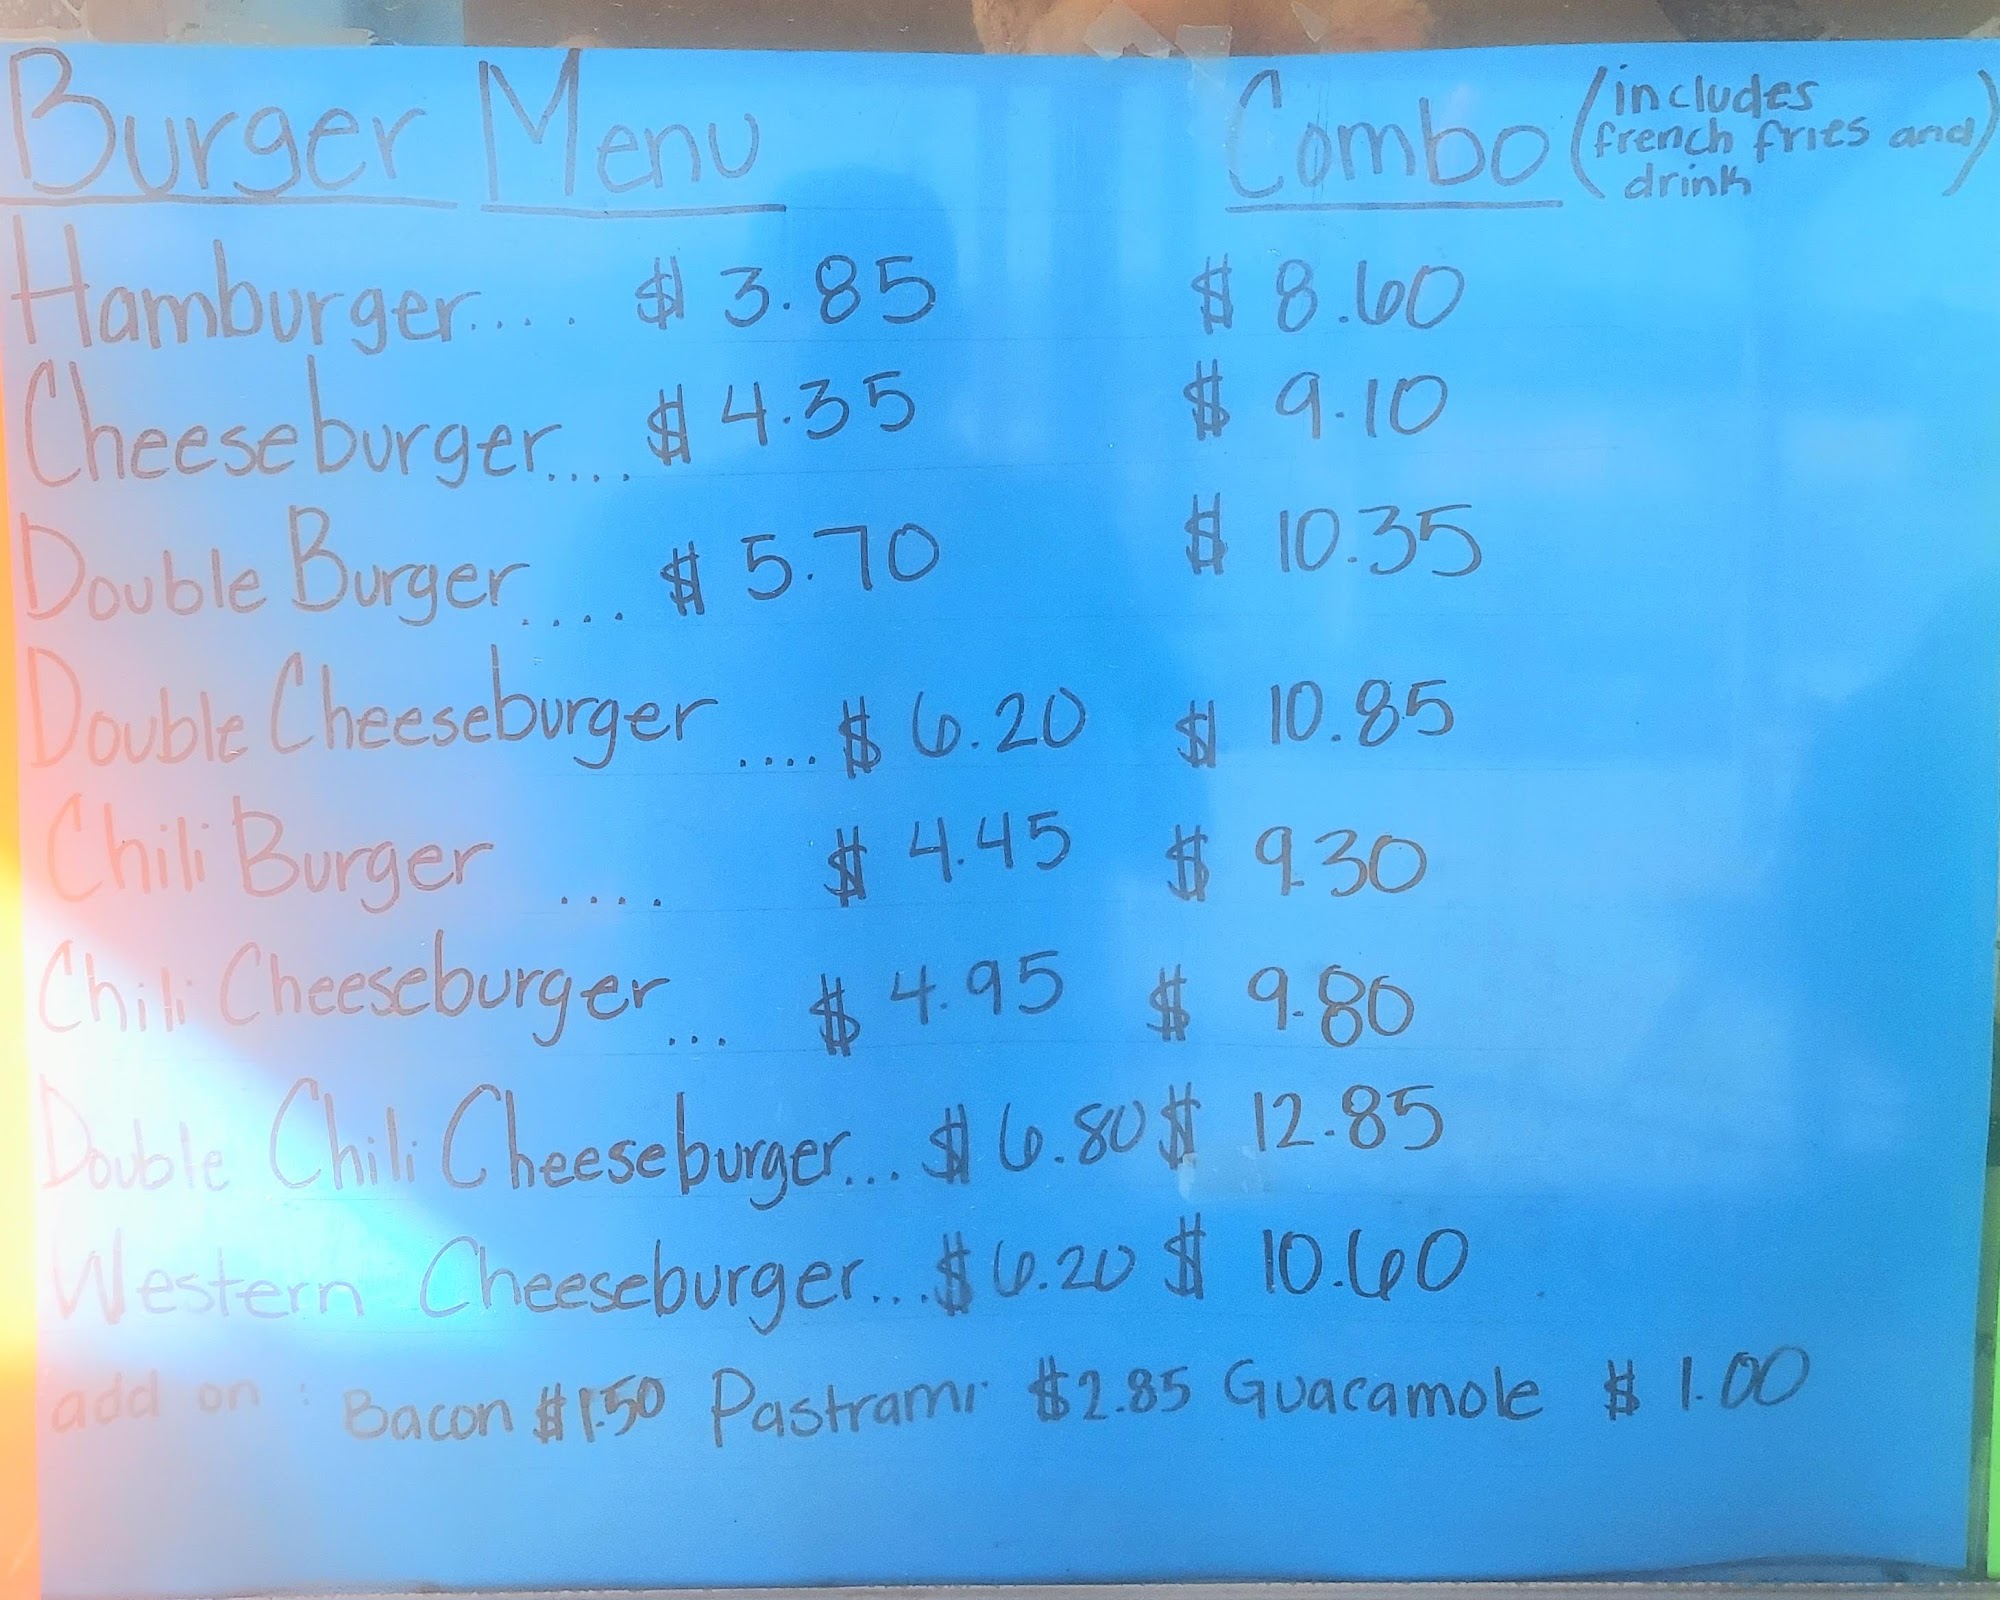 Burger Menu Combo (includes french fries and drink)
Hamburger.... $ 3.85 $ 8.60
Cheeseburger.... $ 4.35 $ 9.10
Double Burger.... $ 5.70 $ 10.35
Double Cheeseburger .... $ 6.20 $ 10.85
Chili Burger .... $ 4.45 $ 9.30
Chili Cheeseburger... $ 4.95 $ 9.80
Double Chili Cheeseburger... $ 6.80 $ 12.85
Western Cheeseburger... $ 6.20 $ 10.60
add on : Bacon $1.50 Pastrami $2.85 Guacamole $ 1.00